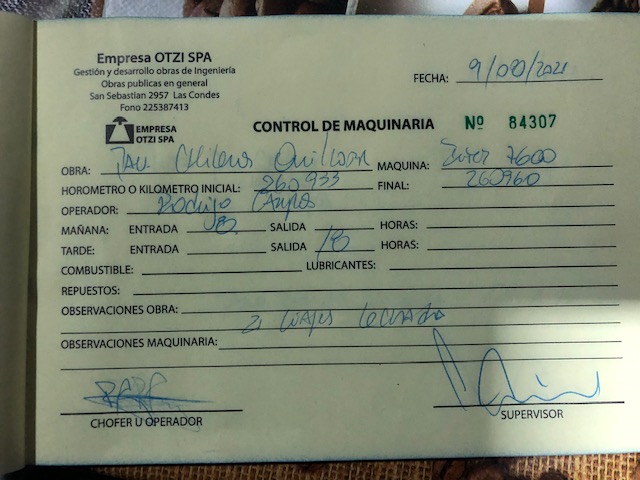 Empresa OTZI SPA
Gestión y desarrollo obras de Ingeniería
Obras publicas en general
San Sebastian 2957 Las Condes
Fono 225387413
FECHA: 9/ /2021
EMPRESA
OTZI SPA
CONTROL DE MAQUINARIA Nº 84307
OBRA: MAQUINA: 7600
HOROMETRO O KILOMETRO INICIAL: 260933 FINAL: 260960
OPERADOR: Rodrigo
MAÑANA: ENTRADA SALIDA HORAS:
TARDE: ENTRADA SALIDA 18 HORAS:
COMBUSTIBLE: LUBRICANTES:
REPUESTOS:
OBSERVACIONES OBRA:
2 viajes
OBSERVACIONES MAQUINARIA:
CHOFER U OPERADOR
SUPERVISOR